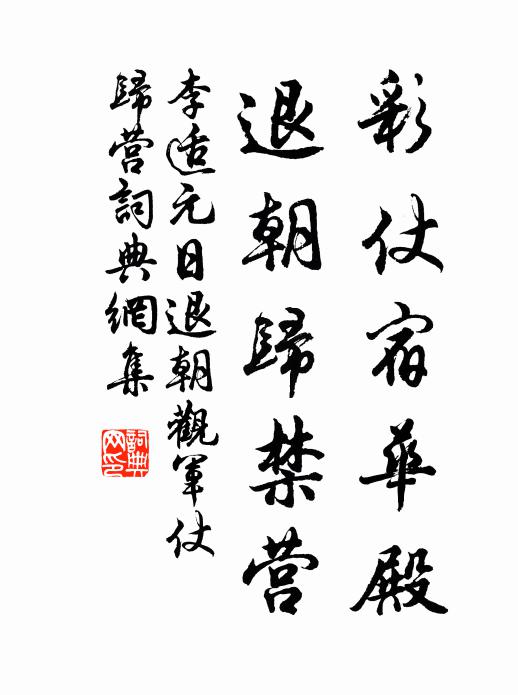 彩仗宿華殿
退朝歸禁营
李适元日退朝觀軍仗
歸营詞典網集
詞典网印